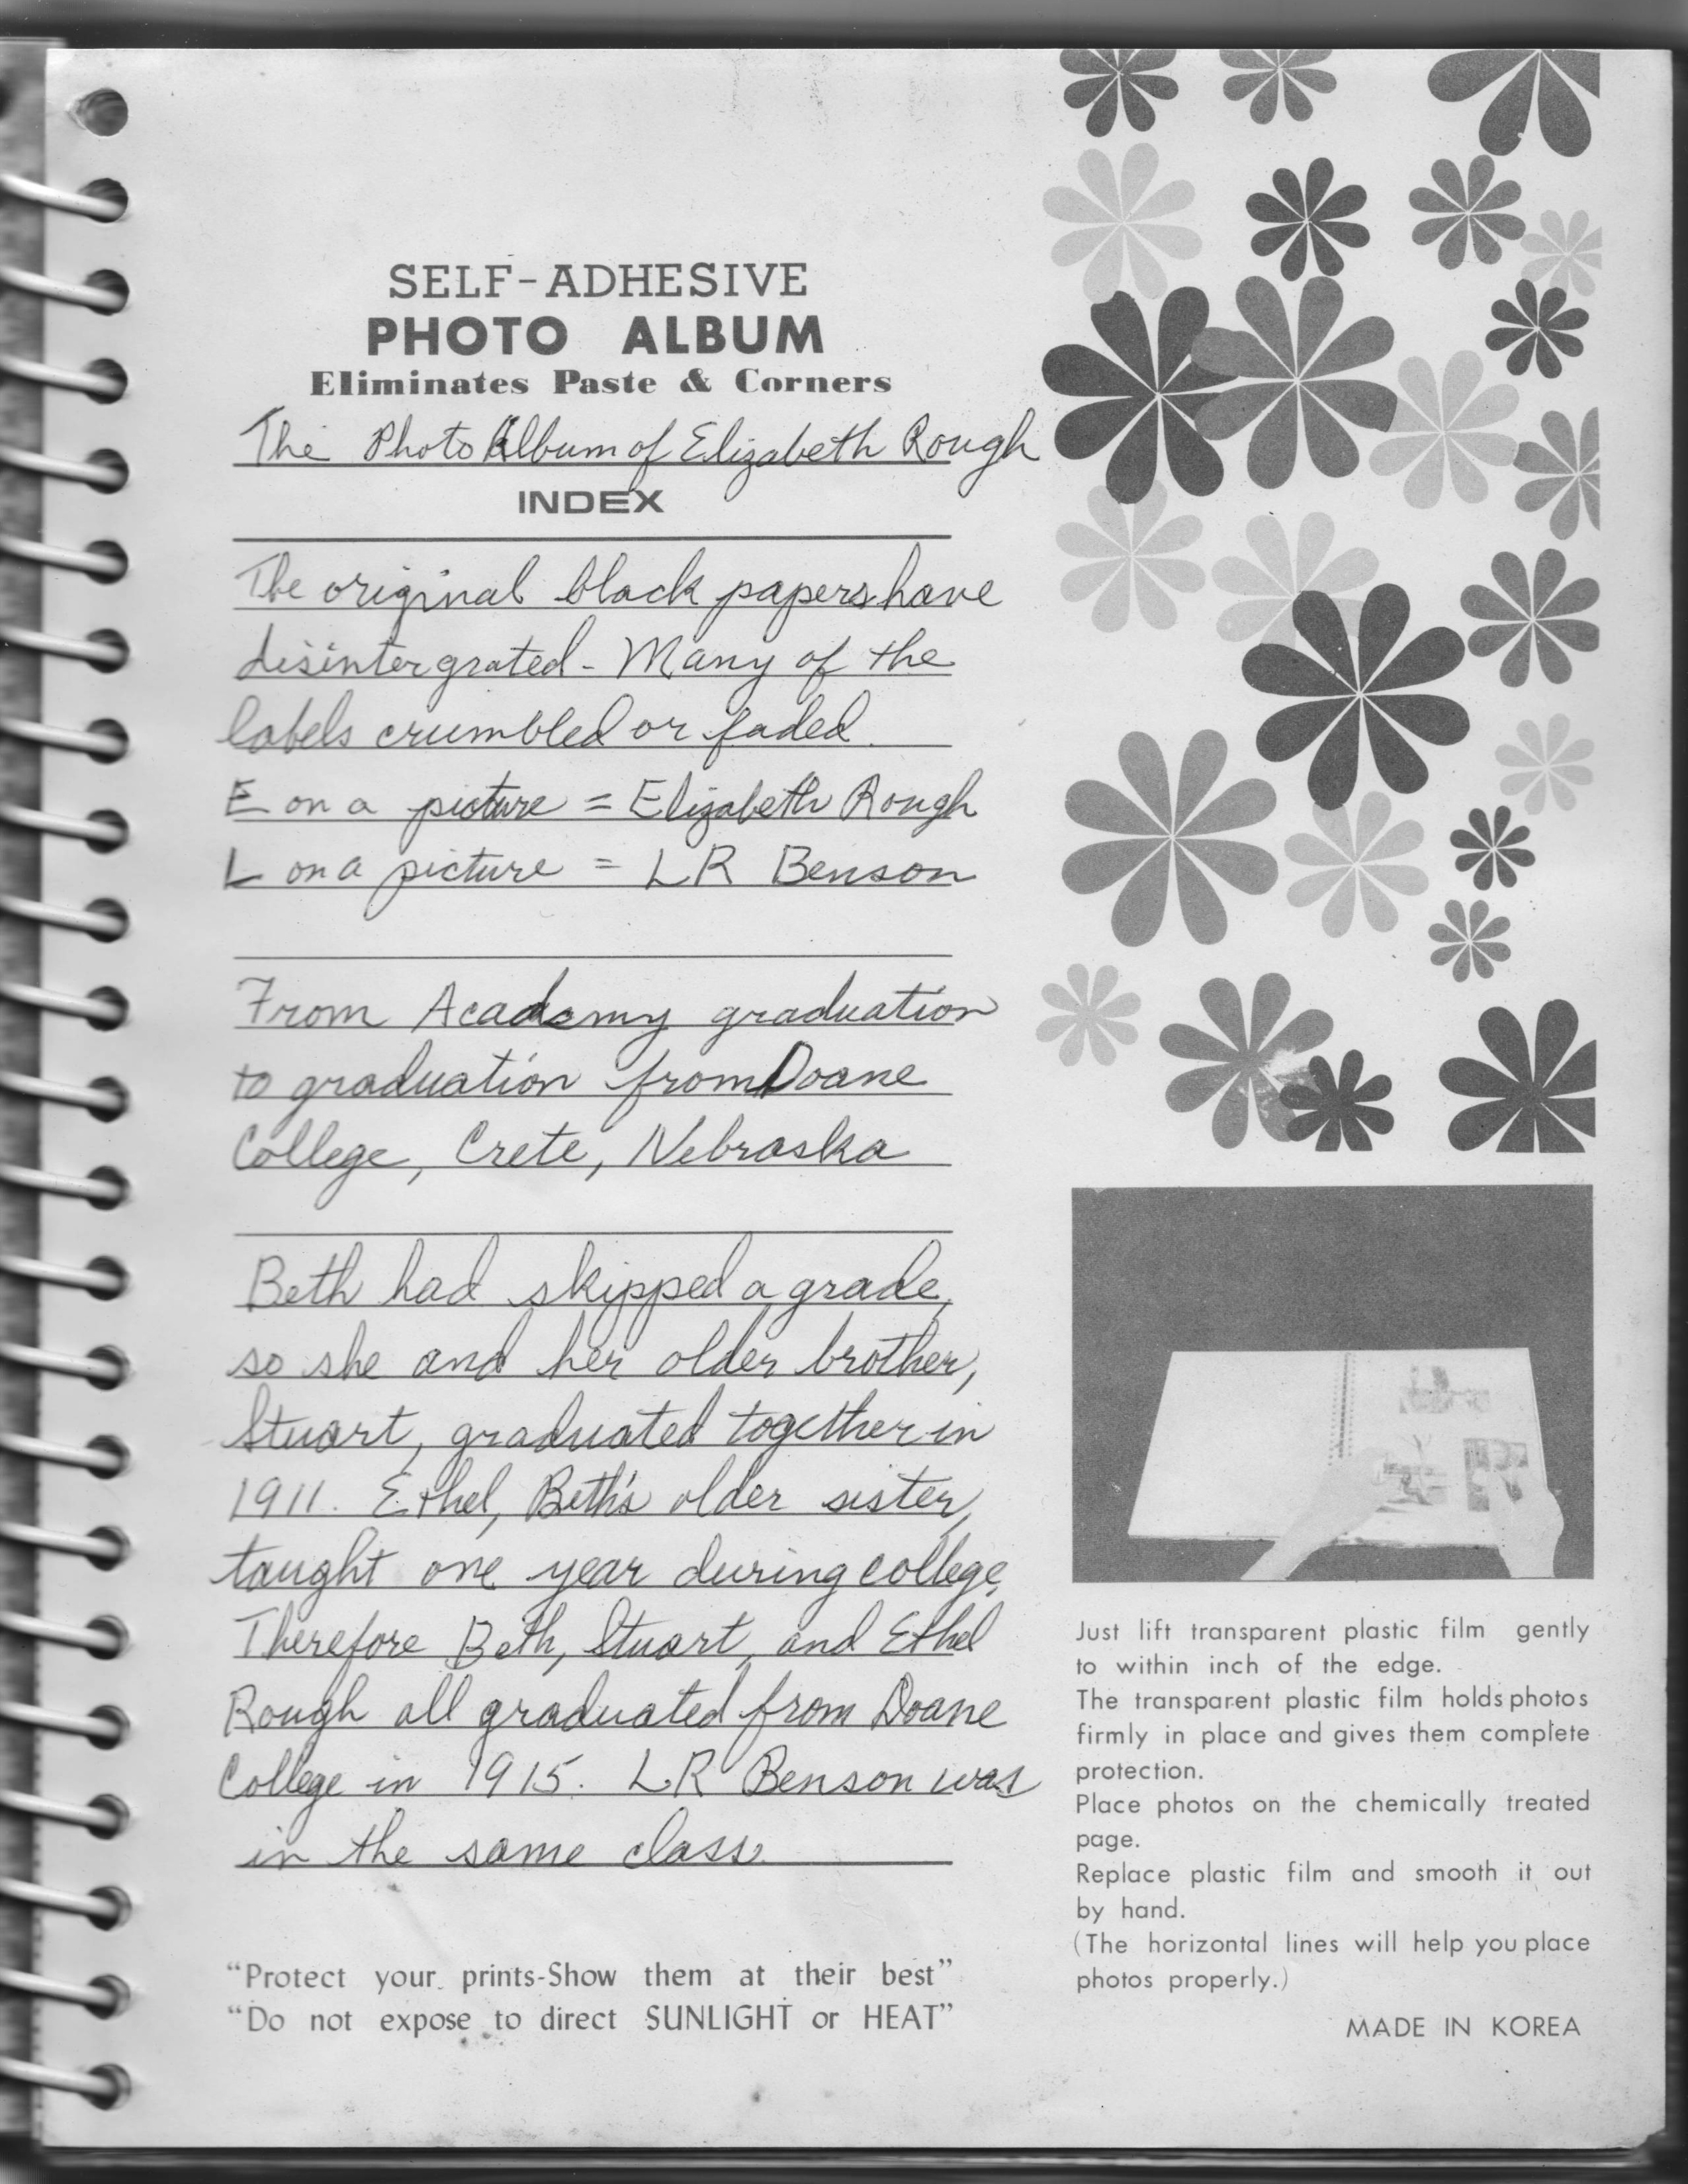 SELF-ADHESIVE
PHOTO ALBUM
Eliminates Paste & Corners
The Photo Album of Elizabeth Rough
INDEX
The original black papers have
disintergrated - Many of the
labels crumbled or faded.
E on a picture = Elizabeth Rough
L on a picture = LR Benson
From Academy graduation
to graduation from Doane
College, Crete, Nebraska
Beth had skipped a grade,
so she and her older brother,
Stuart, graduated together in
1911. Ethel, Beth's older sister,
taught one year during college.
Therefore Beth, Stuart, and Ethel
Rough all graduated from Doane
College in 1915. LR Benson was
in the same class.
"Protect your prints-Show them at their best"
"Do not expose to direct SUNLIGHT or HEAT"
Just lift transparent plastic film gently
to within inch of the edge.
The transparent plastic film holds photos
firmly in place and gives them complete
protection.
Place photos on the chemically treated
page.
Replace plastic film and smooth it out
by hand.
(The horizontal lines will help you place
photos properly.)
MADE IN KOREA